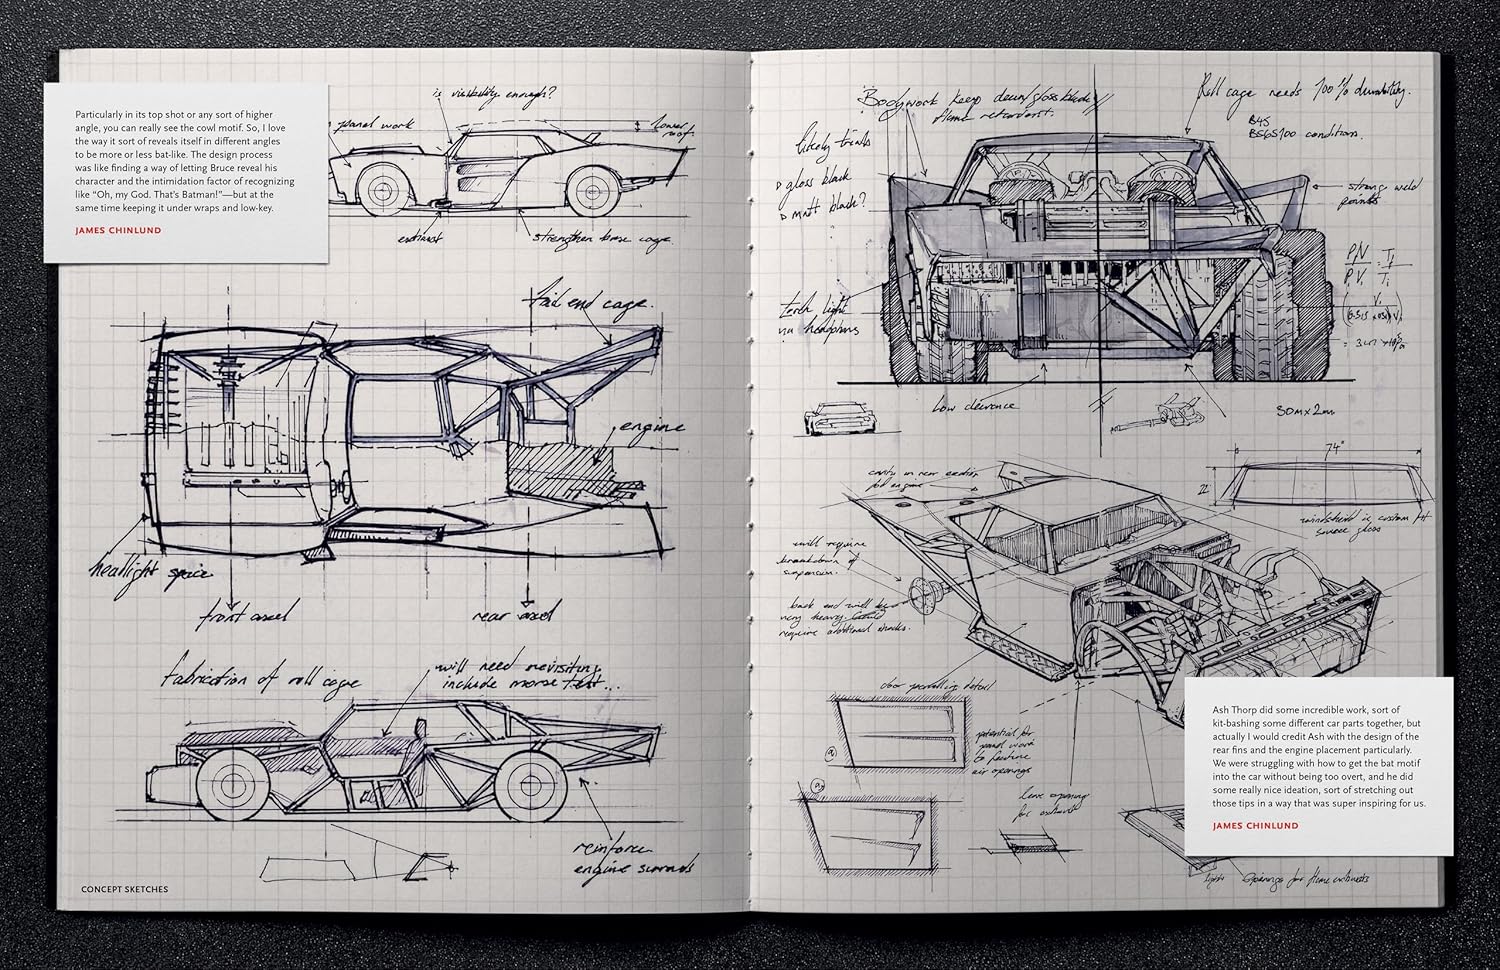 Particularly in its top shot or any sort of higher
angle, you can really see the cowl motif. So, I love
the way it sort of reveals itself in different angles
to be more or less bat-like. The design process
was like finding a way of letting Bruce reveal his
character and the intimidation factor of recognizing
like “Oh, my God. That’s Batman!”—but at the
same time keeping it under wraps and low-key.
JAMES CHINLUND
is visibility enough?
panel work
lower
roof
exhaust
strengthen base cage.
tail end cage.
engine
headlight space
front axel
rear axel
fabrication of roll cage
will need revisiting,
include morse test...
reinforce
engine surrounds
CONCEPT SKETCHES
Bodywork keep clean/gloss black
flame retardent.
Roll cage needs 100% durability.
BS4S
BS6S100 condition.
likely treads
gloss black
matt black?
strong weld
points
torch light
via headphones
P₁V₁
T₁
Low clearance
50m x 2mm
74"
22"
cavity in rear section
for engine
windshield is custom fit
source glass
will require
breakdown of
suspension.
back end will be
very heavy. Could
require additional shocks.
door panelling detail
potential for
panel work
to feature
air openings
(a)
(a)
leave opening
for exhaust
Ash Thorp did some incredible work, sort of
kit-bashing some different car parts together, but
actually I would credit Ash with the design of the
rear fins and the engine placement particularly.
We were struggling with how to get the bat motif
into the car without being too overt, and he did
some really nice ideation, sort of stretching out
those tips in a way that was super inspiring for us.
JAMES CHINLUND
lights
Openings for flame exhausts